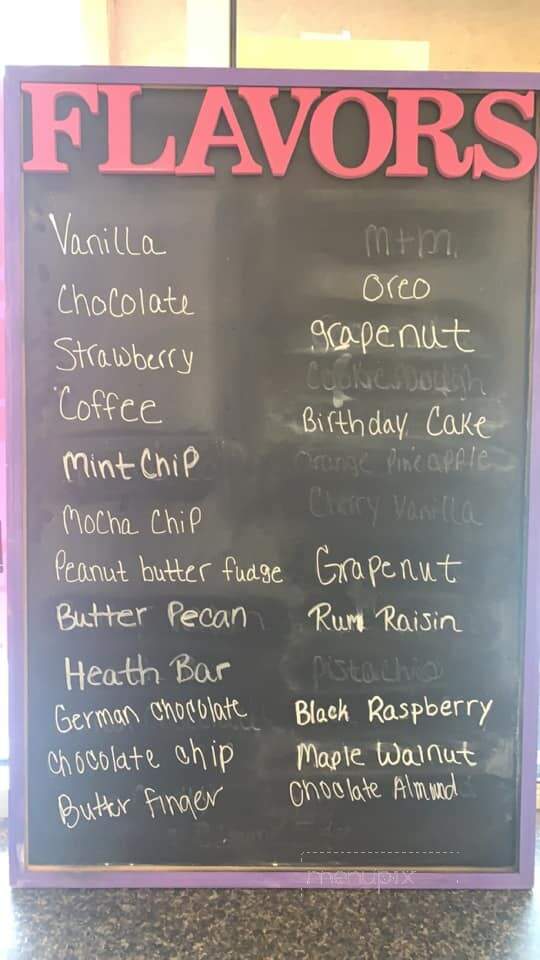 FLAVORS
Vanilla
Chocolate
Strawberry
Coffee
Mint Chip
Mocha Chip
Peanut butter fudge
Butter Pecan
Heath Bar
German chocolate
chocolate chip
Butter finger
m+m
Oreo
grapenut
Cookie Dough
Birthday Cake
Orange Pineapple
Cherry Vanilla
Grapenut
Rum Raisin
Pistachio
Black Raspberry
Maple Walnut
Choclate Almond
menupix